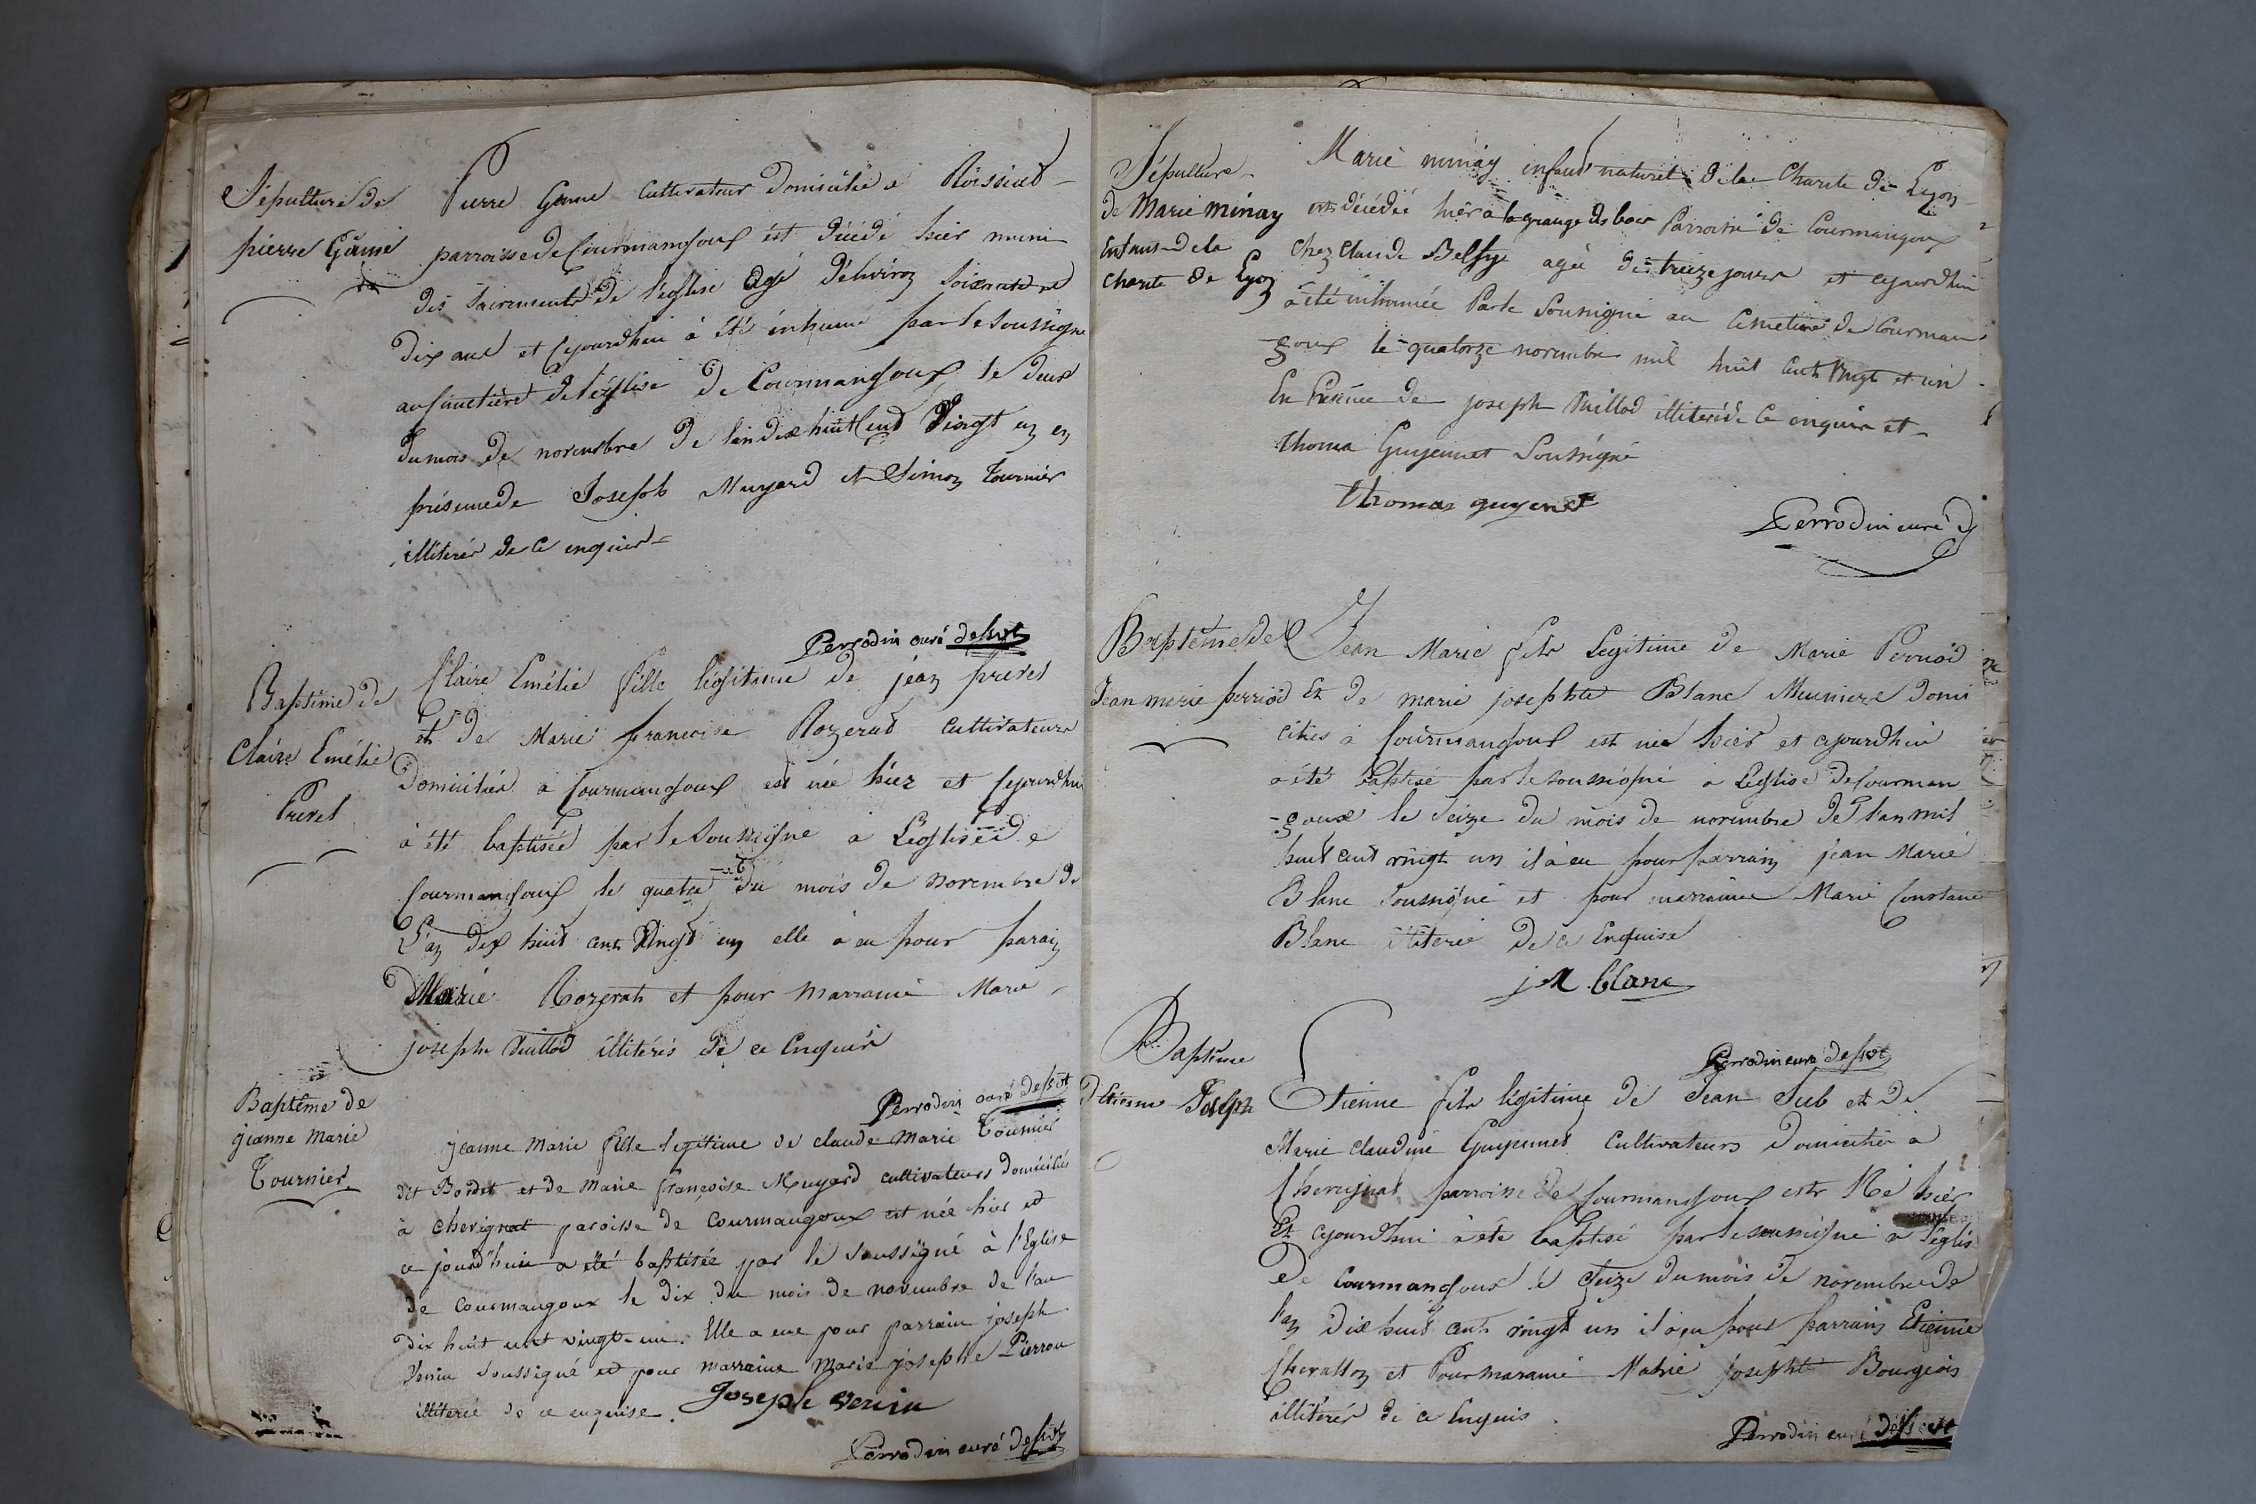 Sépulture de
pierre Game
Pierre Game Cultivateur Domicilié a Roissiat
parroisse de Courmangoux est décédé hier muni
des Sacrements de l'église agé d'environ Soixante et
dix ans et Cejourdhui à été inhumé par le Soussigné
au Cimetière de l'église de Courmangoux le deux
du mois de novembre de l'an dix huit Cent Vingt un en
présence de Joseph Muyard et Simon Tournier
illiterés de ce enquis
Perrodin curé dessert
Baptême de
Claire Emélie
Prevel
Claire Emélie fille légitime de jéan prevel
et de Marie francoise Rozerat cultivateurs
Domiciliés a Courmangoux est née hier et Cejourdhui
à été baptisée par le Soussigné a L'eglise de
Courmangoux le quatre du mois de novembre de
L'an dix huit cent Vingt un elle à eu pour parain
Marie Rozerat et pour marraine Marie
joseph Vuillod illiterés de ce Enquis
Perrodin curé dessert
Baptême de
jeanne Marie
Tournier
jeanne Marie fille legitime de claude Marie Tournier
dit Bordet et de Marie françoise Muyard cultivateurs domiciliés
à chevignat paroisse de Courmangoux est née hier et
ce jourd'hui a été baptisée par le Soussigné à l'Eglise
de Courmangoux le dix du mois de novembre de l'an
dix huit cent vingt-un. Elle a eue pour parrain joseph
Venin Soussigné et pour marraine Marie josephe Pierron
illiterée de ce enquise.
Joseph Venin
Perrodin curé dessert
Sépulture
de Marie Minay
Enfant de la
Charité de Lyon
Marie minay enfant naturel de la Charité de Lyon
est décédée hier à la grange des bois Parroisse de Courmangoux
chez Claude Belfye agée de treize jours et cejourdhui
a été inhumée Par le Soussigné au Cimetiere de Courman
-goux le quatorze novembre mil huit Cent Vingt et un
En Présence de joseph Vuillod illiteré de Ce enquis et
Thoma Guyennet Soussigné
Thomas guyenet
Perrodin curé d
Baptême de
Jean marie perriod
Jean Marie fils Legitime de Marie Perriod
Et de marie josephte Blanc Meuniers domi
ciliés a Courmangoux est né hier et cejourdhui
a été Baptisé par le soussigné a L'église de Courman
-goux le Seize du mois de novembre de l'an mil
huit cent vingt un il à eu pour parrain jean Marie
Blanc Soussigné et pour marraine Marie Constance
Blanc illiterée de ce Enquise
j M blanc
Perrodin curé dessert
Baptême
d'Etienne
Etienne fils légitime de Jean Sub et de
Marie claudine Guyennet Cultivateurs Domiciliés à
Chevignat parroisse de Courmangoux est Né hier
Et cejourdhui à été baptisé par le soussigné a l'églis
De Courmangoux le Seize du mois de novembre de
l'an Dix huit cent vingt un il a eu pour parrain Etienne
Chevallon et Pour maraine Marie josephte Bourgeois
illiterés de ce Enquis.
Perrodin curé dessert